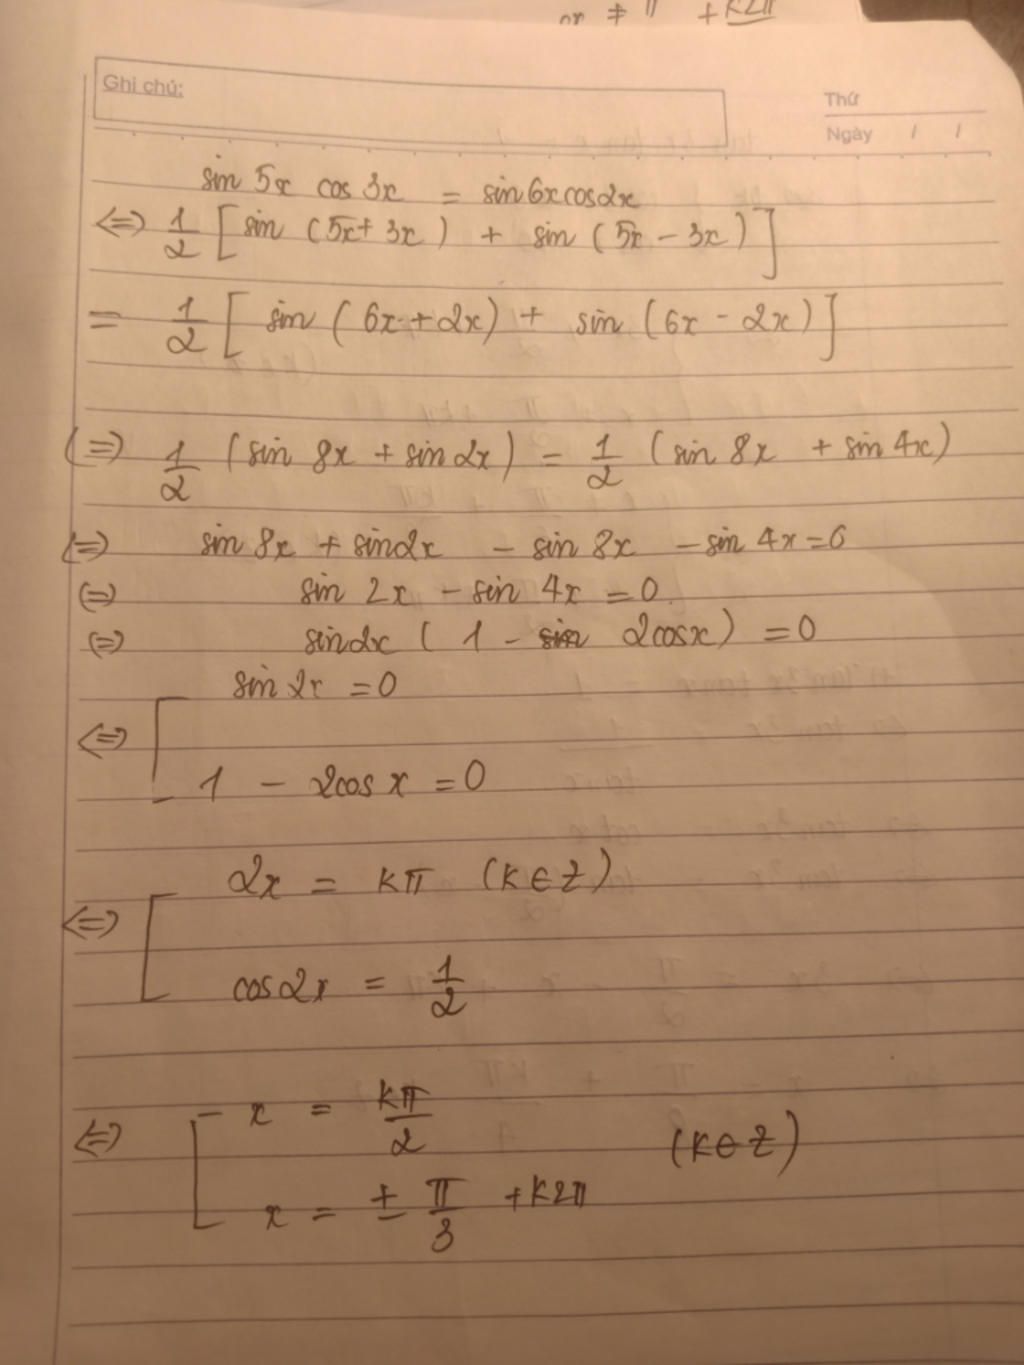 + k2π
Ghi chú:
Thứ
Ngày / /
sin 5x cos 3x = sin 6x cos 2x
<=> 1/2 [ sin (5x + 3x) + sin (5x - 3x) ]
= 1/2 [ sin (6x + 2x) + sin (6x - 2x) ]
<=> 1/2 (sin 8x + sin 2x) = 1/2 (sin 8x + sin 4x)
<=> sin 8x + sin 2x - sin 8x - sin 4x = 0
<=> sin 2x - sin 4x = 0
<=> sin 2x ( 1 - 2cos x) = 0
sin 2x = 0
<=> [
1 - 2cos x = 0
2x = kπ (k ∈ Z)
<=> [
cos 2x = 1/2
<=> [ x = kπ/2
(k ∈ Z)
x = ± π/3 + k2π